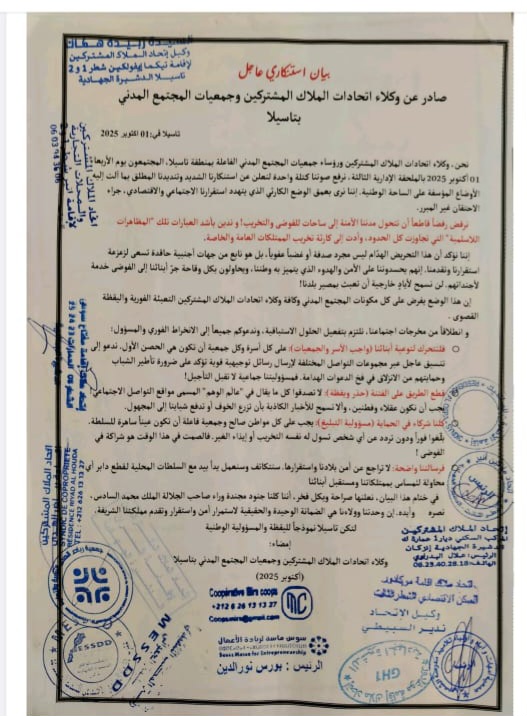 السيدة زبيدة هطان
وكيل إتحاد الملاك المشتركين
لإقامة تيكمي إيفولكين شطر 1 و 2
تاسيلا الدشيرة الجهادية
بيان استنكاري عاجل
صادر عن وكلاء اتحادات الملاك المشتركين وجمعيات المجتمع المدني
بتاسيلا
تاسيلا في: 01 اكتوبر 2025
نحن، وكلاء اتحادات الملاك المشتركين ورؤساء جمعيات المجتمع المدني الفاعلة بمنطقة تاسيلا، المجتمعون يوم الأربعاء
01 أكتوبر 2025 بالملحقة الإدارية الثالثة، نرفع صوتنا كتلة واحدة لنعلن عن استنكارنا الشديد وتنديدنا المطلق بما آلت إليه
الأوضاع المؤسفة على الساحة الوطنية. إننا نرى بعمق الوضع الكارثي الذي يتهدد استقرارنا الاجتماعي والاقتصادي، جراء
الاحتقان غير المبرر.
نرفض رفضاً قاطعاً أن تتحول مدننا الآمنة إلى ساحات للفوضى والتخريب! و ندين بأشد العبارات تلك "المظاهرات
اللاسلمية" التي تجاوزت كل الحدود، وأدت إلى كارثة تخريب الممتلكات العامة والخاصة.
إننا نؤكد أن هذا التحريض الهدام ليس مجرد صدفة أو غضباً عفوياً، بل هو نابع من جهات أجنبية حاقدة تسعى لزعزعة
استقرارنا وتقدمنا. إنهم يحسدوننا على الأمن والهدوء الذي يتميز به وطننا، ويحاولون بكل وقاحة جرّ أبنائنا إلى الفوضى خدمة
لأجنداتهم. لن نسمح لأيادٍ خارجية أن تعبث بمصير بلدنا!
إن هذا الوضع يفرض على كل مكونات المجتمع المدني وكافة وكلاء اتحادات الملاك المشتركين التعبئة الفورية واليقظة
القصوى .
و انطلاقاً من مخرجات اجتماعنا، نلتزم بتفعيل الحلول الاستباقية، وندعوكم جميعاً إلى الانخراط الفوري والمسؤول:
فلنتحرك لتوعية أبنائنا (واجب الأسر والجمعيات): على كل أسرة وكل جمعية أن تكون هي الحصن الأول. ندعو إلى
تنسيق عاجل عبر مجموعات التواصل المختلفة لإرسال رسائل توجيهية قوية تؤكد على ضرورة تأطير الشباب
وحمايتهم من الانزلاق في فخ الدعوات الهدامة. فمسؤوليتنا جماعية لا تقبل التأجيل!
قطع الطريق على الفتنة (حذر ويقظة): لا تصدقوا كل ما يقال في "عالم الوهم" المسمى مواقع التواصل الاجتماعي!
يجب أن نكون عقلاء وفطنين، وألا نسمح للأخبار الكاذبة بأن تزرع الخوف أو تدفع شبابنا إلى المجهول.
كلنا شركاء في الحماية (مسؤولية التبليغ): يجب على كل مواطن صالح وجمعية فاعلة أن تكون عيناً ساهرة للسلطة.
بلّغوا فوراً ودون تردد عن أي شخص تسول له نفسه التخريب أو إيذاء الغير. فالصمت في هذا الوقت هو شراكة في
الفوضى !
فرسالتنا واضحة: لا تراجع عن أمن بلادنا واستقرارها. سنتكاتف وسنعمل يداً بيد مع السلطات المحلية لقطع دابر أي
محاولة للمساس بممتلكاتنا ومستقبل أبنائنا
في ختام هذا البيان، نعلنها صراحة وبكل فخر، أننا كلنا جنود مجندة وراء صاحب الجلالة الملك محمد السادس.
نصره وأيده. إن وحدتنا وولاءنا هي الضمانة الوحيدة والحقيقية لاستمرار أمن واستقرار وتقدم مملكتنا الشريفة.
لتكن تاسيلا نموذجاً لليقظة والمسؤولية الوطنية
إمضاء:
وكلاء اتحادات الملاك المشتركين وجمعيات المجتمع المدني بتاسيلا
(أكتوبر 2025)
اتحاد الملاك المشتركين
SYNDIC DE COPROPRIETE
RESIDENCE RIYAD AL HOUDA
TEL: +212 626 13 13 27
Cooperative Bim coops
+212 6 26 13 13 27
سوس ماسة لريادة الأعمال
Souss Massa for Entrepreneurship
الرئيس : بورس نورالدين
MESSDD
إتحاد الملاك المشتركين
الرئيس: علال البدراوي
الهاتف: 06.23.40.28.18
اتحاد ملاك اقامة مركانتور
السكن الاقتصادي الشطر الثالث
وكيل الاتحاد
نذير السبيطي
GH1